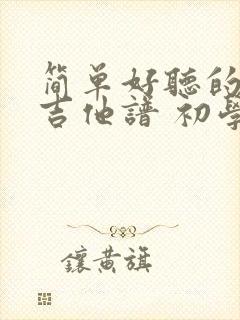 简单好聽的
吉他譜 初學
鑲黄旗